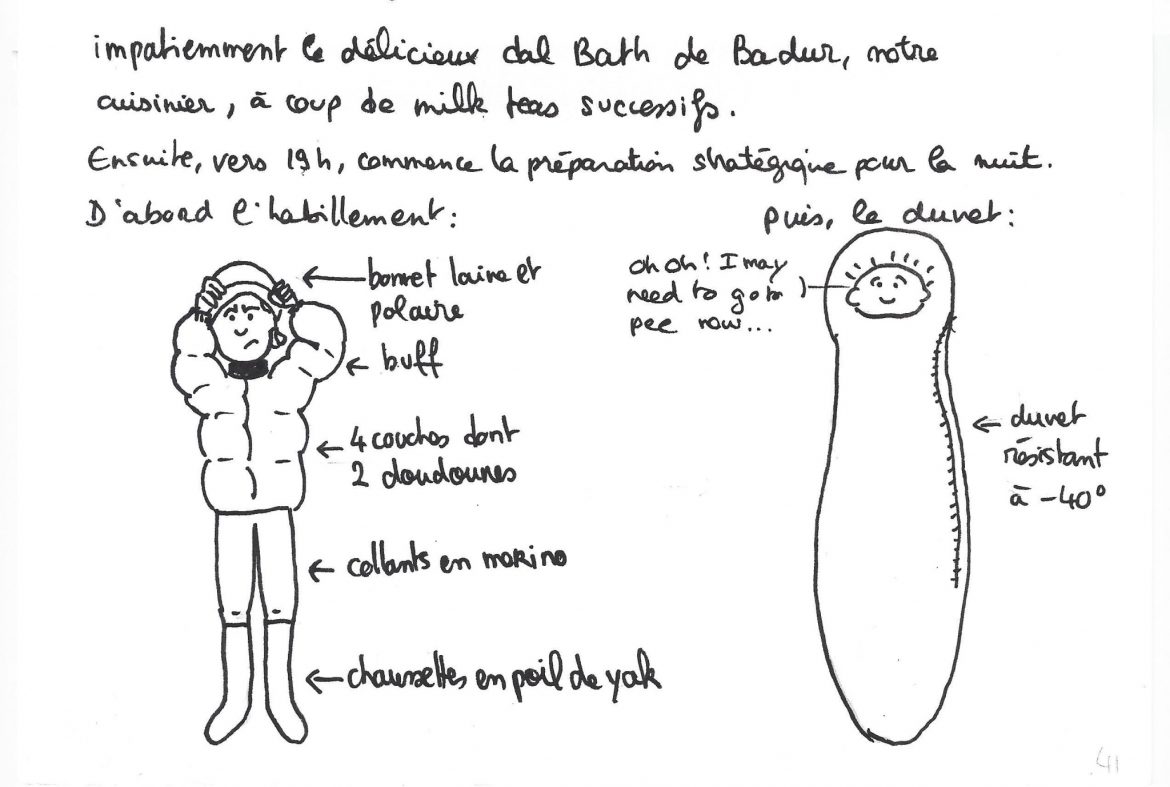 impatiemment le délicieux dal Bath de Badur, notre
cuisinier, à coup de milk teas successifs.
Ensuite, vers 19h, commence la préparation stratégique pour la nuit.
D'abord l'habillement:
bonnet laine et
polaire
buff
4 couches dont
2 doudounes
collants en merino
chaussettes en poil de yak
puis, le duvet:
oh oh! I may
need to go to
pee now...
duvet
résistant
à -40°
41